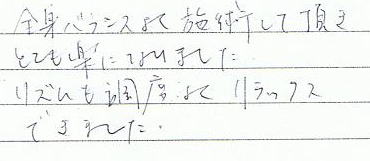 全身バランスよく施術して頂き
とても楽になりました
リズムも調度よくリラックス
できました.